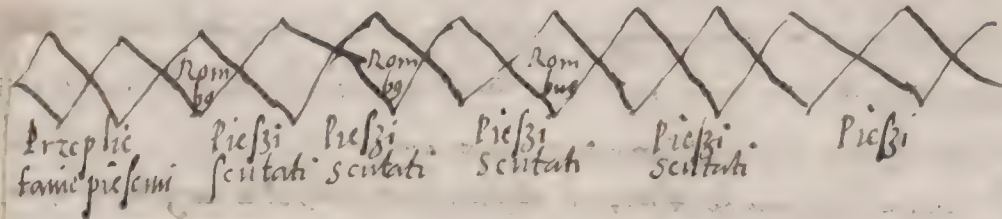 Rom
bg
Rom
bg
Rom
bus
Przeplie
tanie pieſemi
Pieſzi
ſcutati
Pieſzi
scutati
Pieſzi
scutati
Pieſzi
scutati
Pieſzi